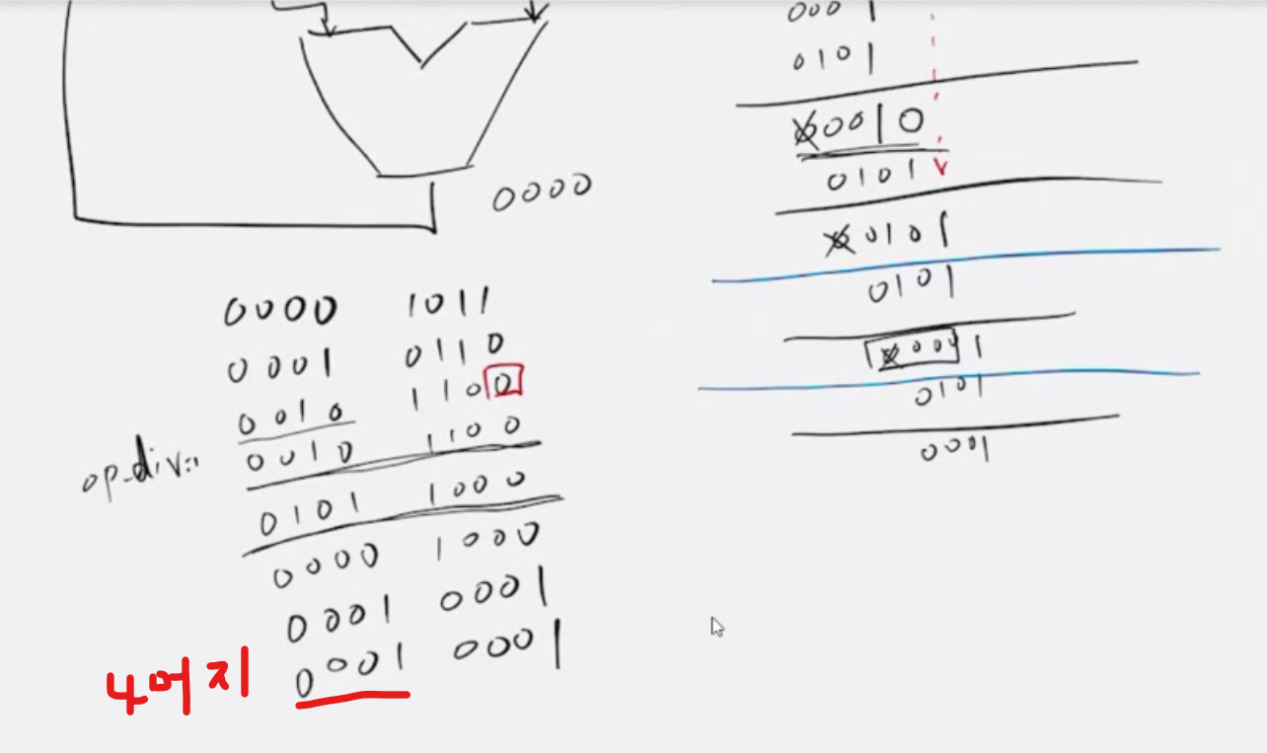 0000
0000 1011
0001 0110
0010 1100
op-div::
0010 1100
0101 1000
0000 1000
0001 0001
나머지
0001 0001
0001
0101
00010
0101
00101
0101
00001
0101
0001